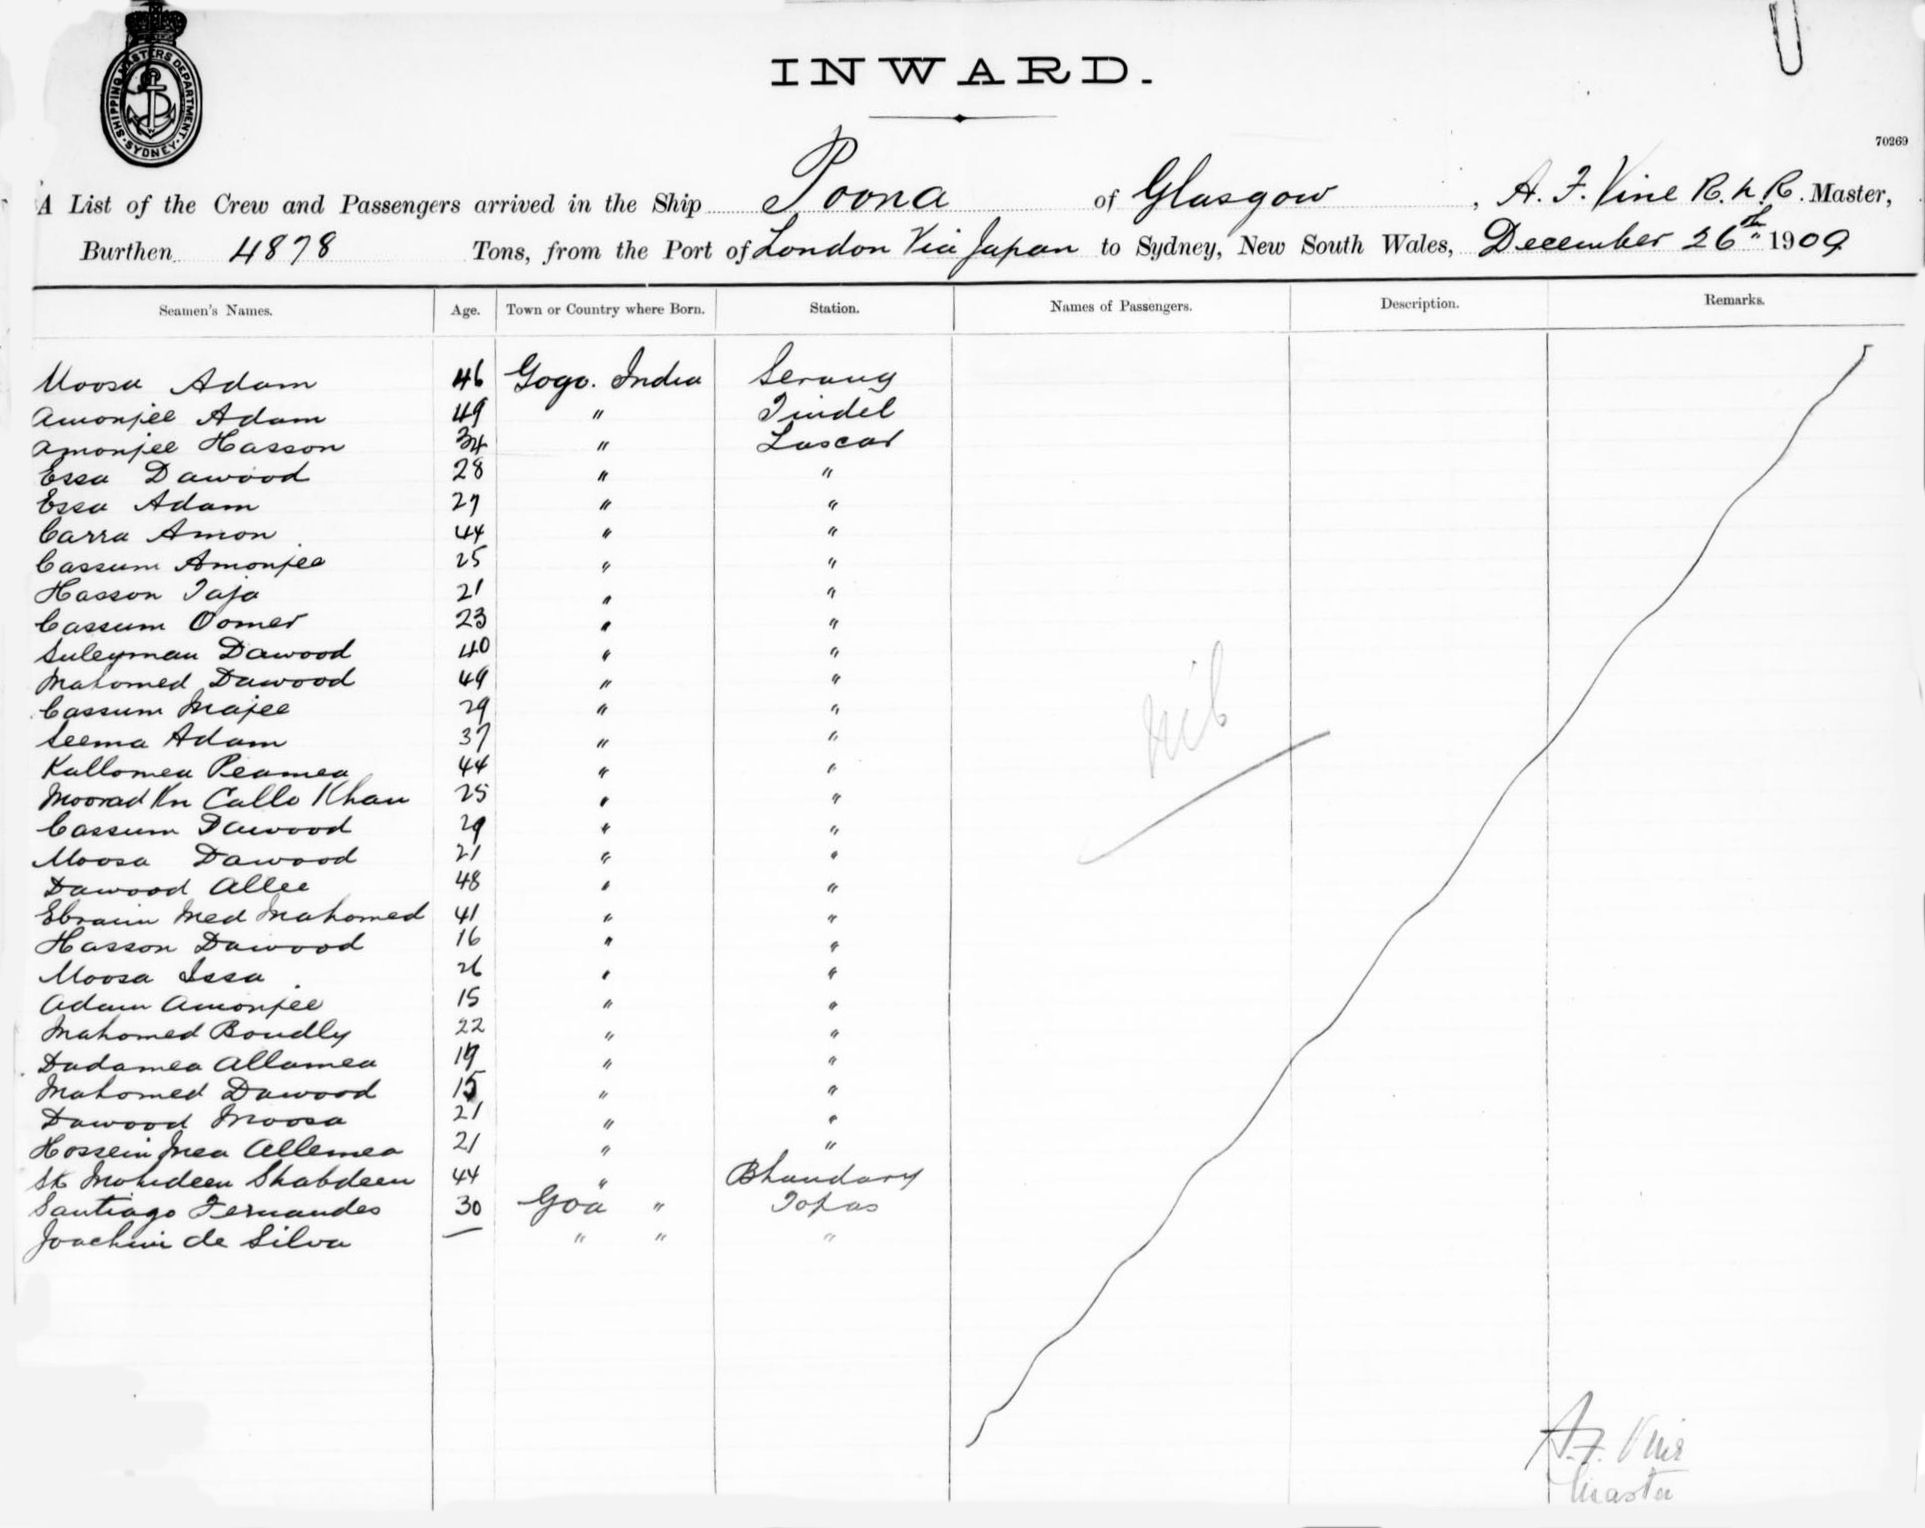 SHIPPING MASTERS DEPARTMENT
SYDNEY
INWARD.
70269
A List of the Crew and Passengers arrived in the Ship Poona of Glasgow, A. F. Vine R.N.R. Master,
Burthen 4878 Tons, from the Port of London Via Japan to Sydney, New South Wales, December 26th 1909
Seamen's Names. Age. Town or Country where Born. Station. Names of Passengers. Description. Remarks.
Moosa Adam 46 Gogo. India Serang
Amonjee Adam 49 " Tindel
Amonjee Hasson 34 " Lascar
Essa Dawood 28 " "
Essa Adam 27 " "
Carra Amon 44 " "
Cassum Amonjee 25 " "
Hasson Taja 21 " "
Cassum Oomer 23 " "
Suleyman Dawood 40 " "
Mahomed Dawood 49 " "
Cassum Majee 29 " "
Seema Adam 37 " "
Kallomea Peamea 44 " "
Moorad Kn Callo Khan 25 " "
Cassum Dawood 29 " "
Moosa Dawood 21 " "
Dawood Allee 48 " "
Ebraim Med Mahomed 41 " "
Hasson Dawood 16 " "
Moosa Issa 26 " "
Adam Amonjee 15 " "
Mahomed Boudly 22 " "
Dadamea Allamea 19 " "
Mahomed Dawood 15 " "
Dawood Moosa 21 " "
Hossein Mea Allemea 21 " "
Sk Mohideen Shabdeen 44 " Bhandary
Santiago Fernandes 30 Goa " Topas
Joachim de Silva — " " "
Nil
A. F. Vine
Master